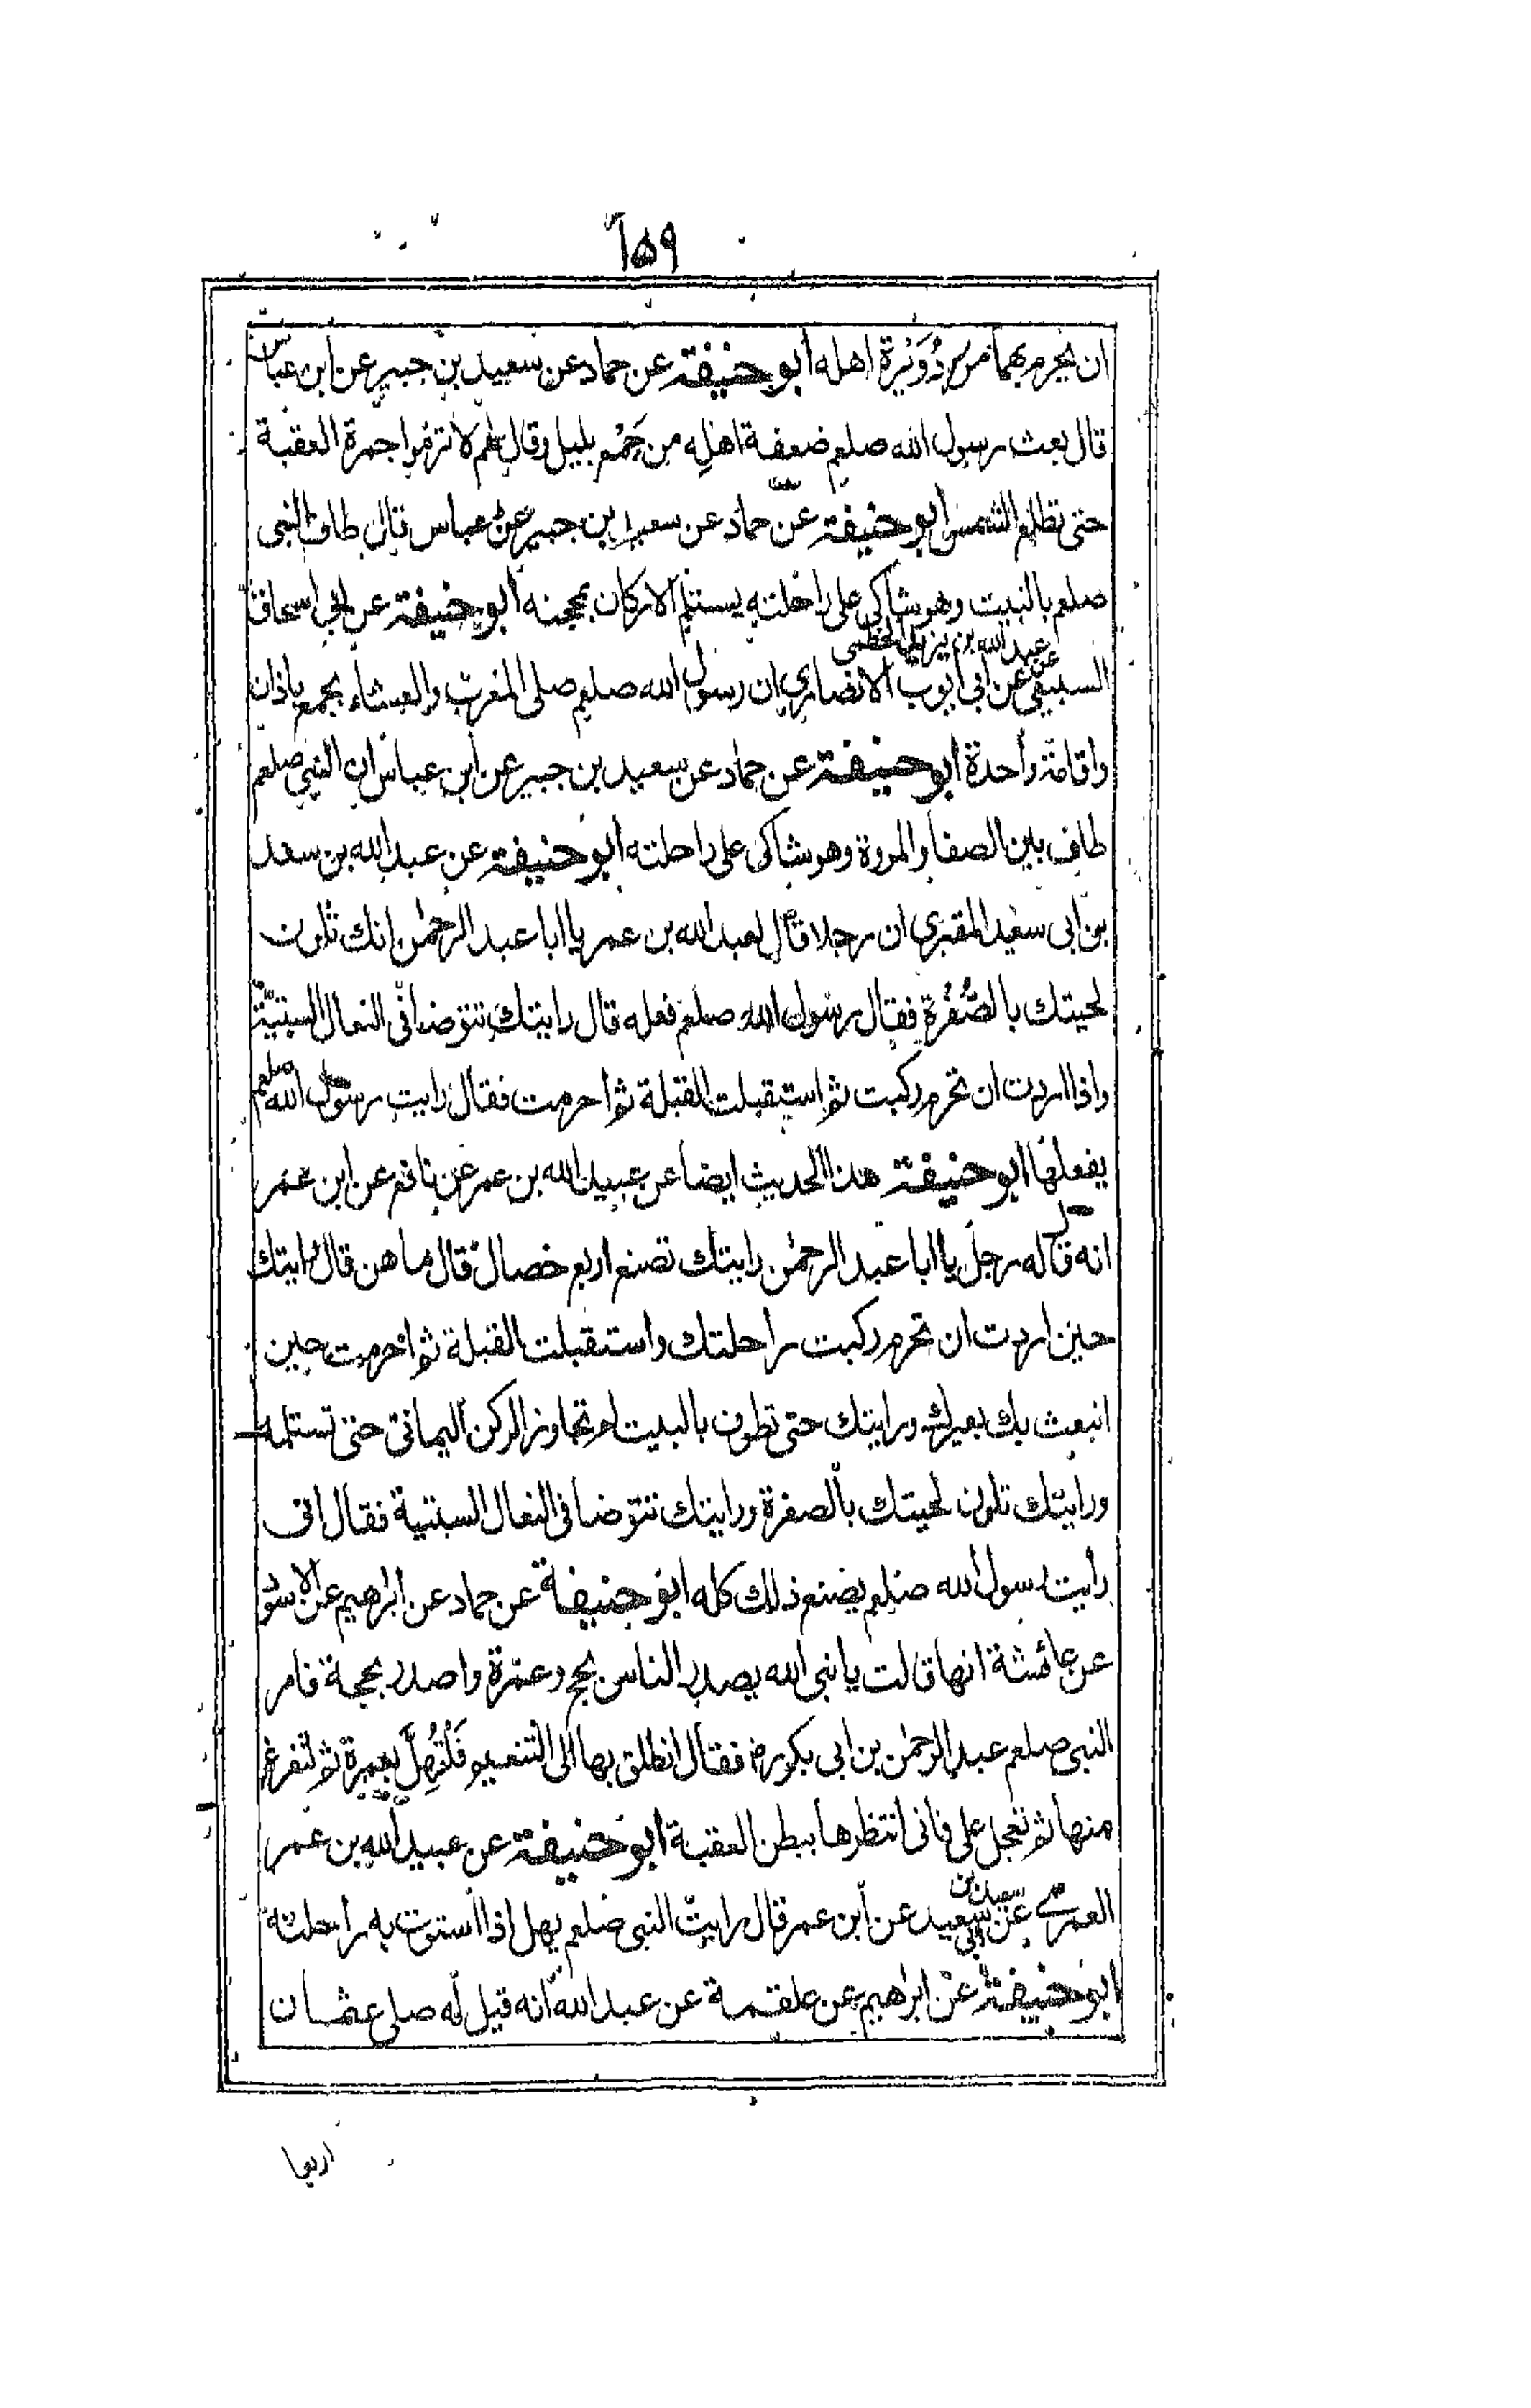 ١٥٩
ان يحرم بهما من دُوَيْرة اهله ابو حنيفة عن حماد عن سعيد بن جبير عن ابن عباس
قال بعث رسول الله صلعم ضعفة اهله من جَمْع بليل وقال لهم لا ترموا جمرة العقبة
حتى تطلع الشمس ابو حنيفة عن حماد عن سعيد بن جبير عن ابن عباس قال طاف النبى
صلعم بالبيت وهو شاكى على راحلته يستلم الاركان بمحجنه ابو حنيفة عن ابى اسحاق
عن عبد الله بن يزيد الخطمى
السبيعى عن ابى ايوب الانصارى ان رسول الله صلعم صلى المغرب والعشاء بجمع باذان
واقامة واحدة ابو حنيفة عن حماد عن سعيد بن جبير عن ابن عباس ان النبى صلعم
طاف بين الصفا والمروة وهو شاكى على راحلته ابو حنيفة عن عبد الله بن سعد
بن ابى سعيد المقبرى ان رجلا قال لعبد الله بن عمر يا ابا عبد الرحمٰن انك تلون
لحيتك بالصُّفْرة فقال رسول الله صلعم فعله قال رايتك تتوضا فى النعال السبتيّة
واذا اردت ان تحرم ركبت ثم استقبلت القبلة ثم احرمت فقال رايت رسول الله صلعم
يفعلها ابو حنيفة هذا الحديث ايضا عن عبيد الله بن عمر عن نافع عن ابن عمر
انه قال له رجل يا ابا عبد الرحمٰن رايتك تصنع اربع خصال قال ما هن قال رايتك
حين اردت ان تحرم ركبت راحلتك واستقبلت القبلة ثم احرمت حين
انبعث بك بعيرك ورايتك حتى تطوف بالبيت لم تجاوز الركن اليمانى حتى تستلمه
ورايتك تلون لحيتك بالصفرة ورايتك تتوضا فى النعال السبتية فقال انى
رأيت رسول الله صلعم يصنع ذلك كله ابو حنيفة عن حماد عن ابراهيم عن الاسود
عن عائشة انها قالت يا نبى الله يصدر الناس بحج وعمرة واصدر بحجة فامر
النبى صلعم عبد الرحمٰن بن ابى بكر رض فقال انطلق بها الى التنعيم فَلْتُهِلَّ بعمرة ثم لتفرغ
منها ثم تعجل على فانى انتظرها ببطن العقبة ابو حنيفة عن عبيد الله بن عمر
العمرى عن سعيد بن ابى سعيد عن ابن عمر قال رايت النبى صلعم يهل اذا استوت به راحلته
ابو حنيفة عن ابراهيم عن علقمة عن عبد الله انه قيل له صلى عثمان
اربعا